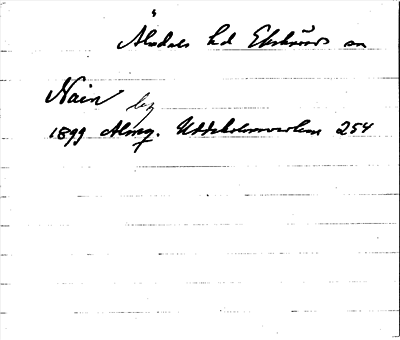 Älvdals hd Ekshärads sn
Nain
by
1899 Almq. Uddeholmsverken 254